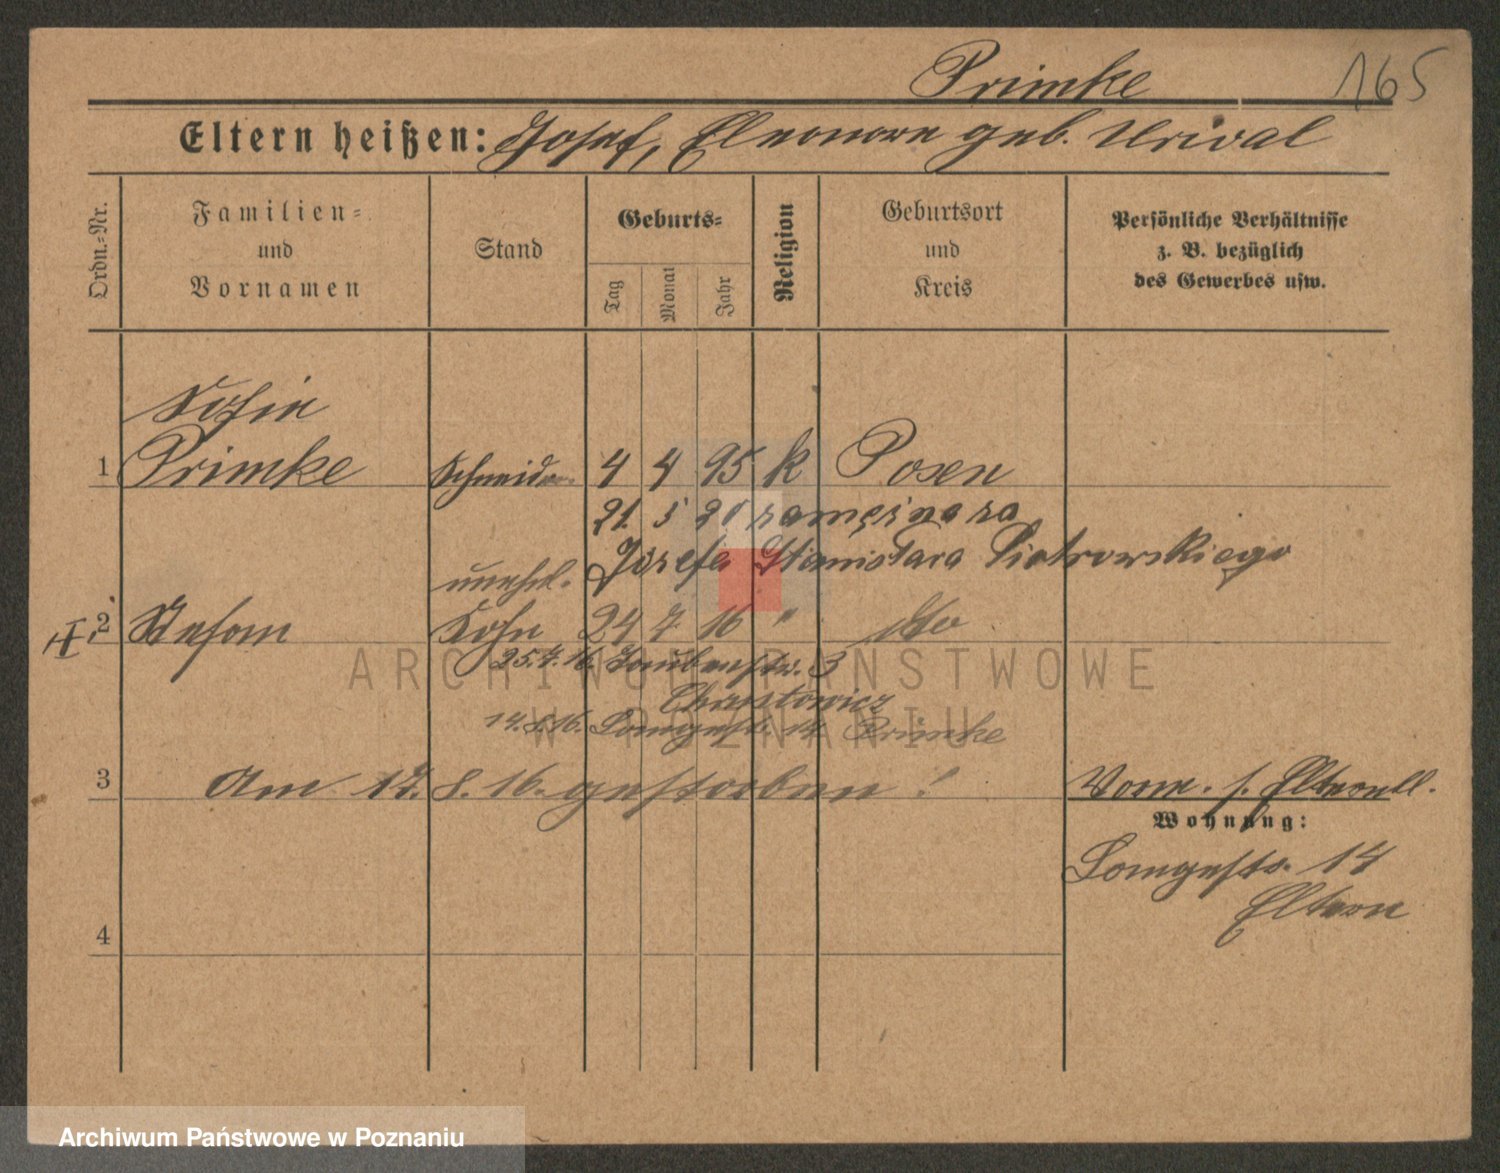 Primke 165
Eltern heißen: Josef, Eleonore geb. Urival
Ordn.-Nr.
Familien- und Vornamen
Stand
Geburts-
Tag Monat Jahr
Religion
Geburtsort und Kreis
Persönliche Verhältnisse
z. B. bezüglich
des Gewerbes usw.
Sofie
1 Primke Schneider. 4 4 95 k Posen
21. 5 20
Józefa Stanisława Piotrowskiego
unehel.
II. 2 Stefan Sohn 24 7 16 " dto
25.7.16. Taubenstr. 3
14.8.16. Langestr. 14. Primke
3 Am 17. 8. 16. gestorben!
Vorm. s. Elternbl.
Wohnung:
Langestr. 14
Eltern
4
ARCHIWUM PAŃSTWOWE
W POZNANIU
Archiwum Państwowe w Poznaniu